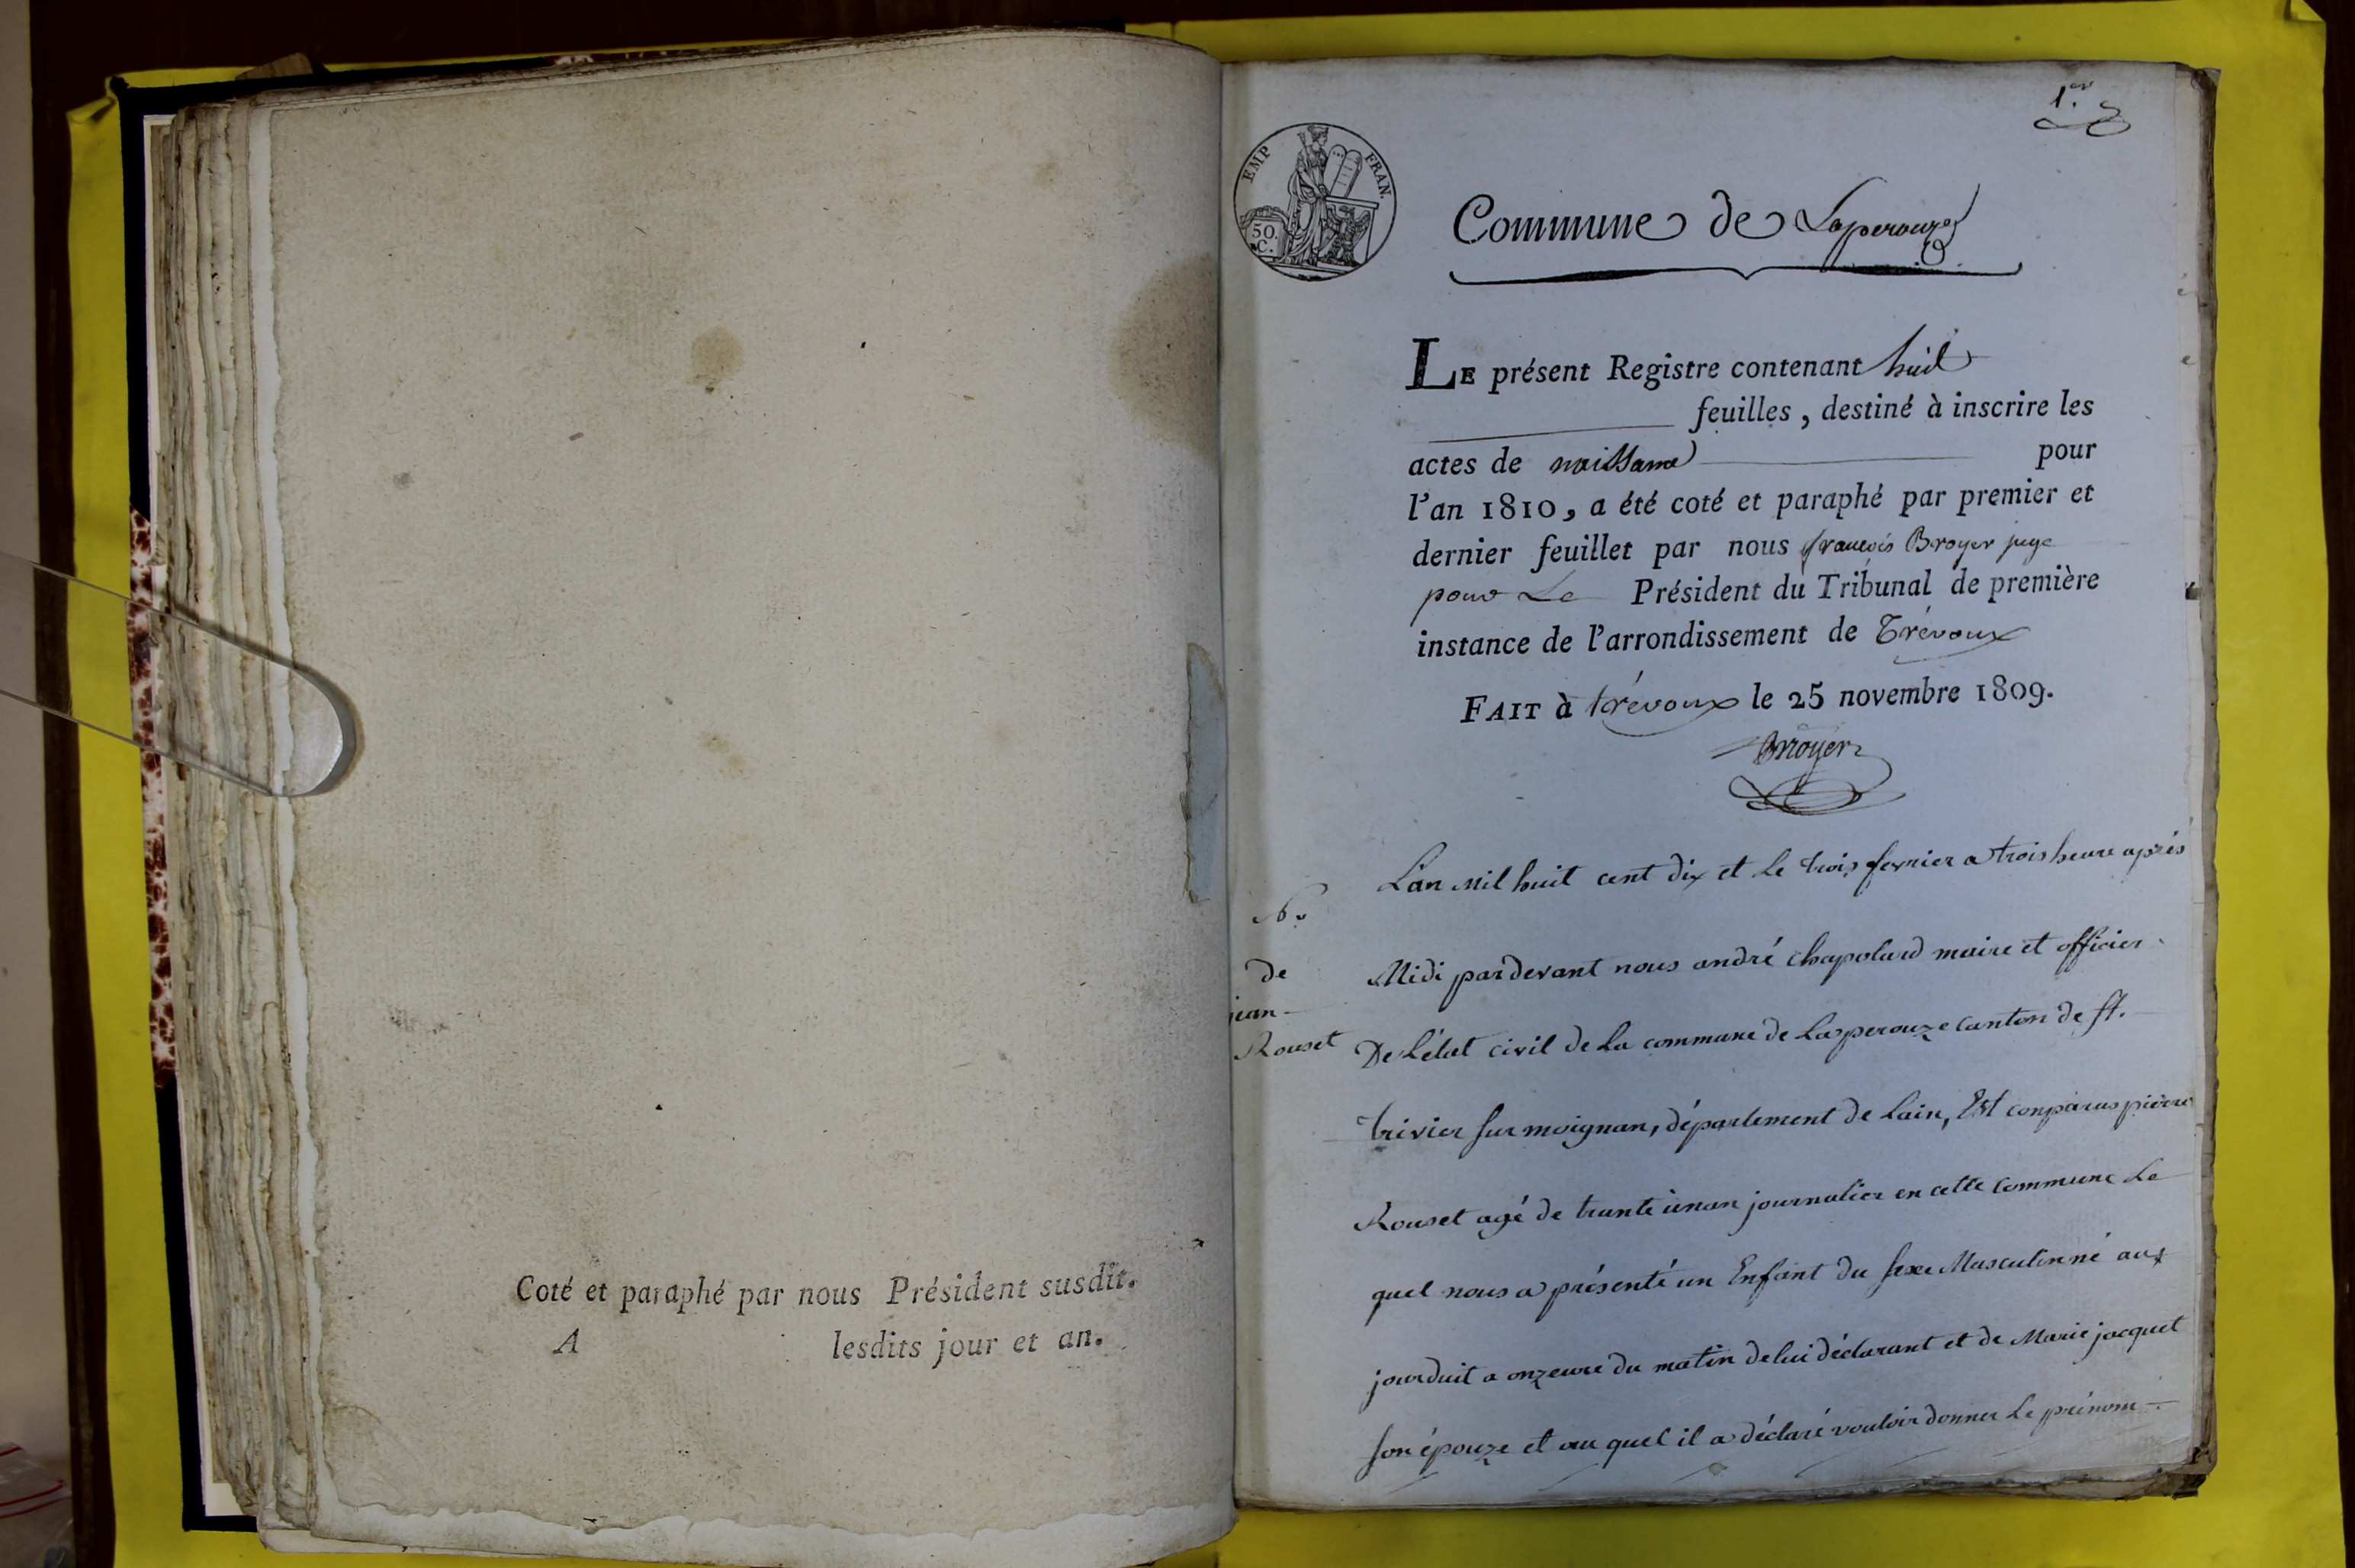 Coté et paraphé par nous Président susdit.
A lesdits jour et an.
1.er
EMP FRAN.
50.
C.
Commune de Laperouze
LE présent Registre contenant huit
feuilles, destiné à inscrire les
actes de naissance pour
l'an 1810, a été coté et paraphé par premier et
dernier feuillet par nous françois Broyer juge
pour Le Président du Tribunal de première
instance de l'arrondissement de Trévoux
FAIT à trévoux le 25 novembre 1809.
Broyer
N.
de
jean
Rouset
L'an mil huit cent dix et le trois fevrier a trois heure après
Midi pardevant nous andré Chapolard maire et officier
De L'état civil de La commune de Laperouze Canton de St.
trivier sur moignan, département de Lain, Est conparus pierre
Rouset agé de trante unan journalier en cette Commune Le
quel nous a présenté un Enfant du sexe Masculin né aux
jourduit a onzeure du matin de lui déclarant et de Marie jacquet
son épouze et au quel il a déclaré vouloir donner Le prénom